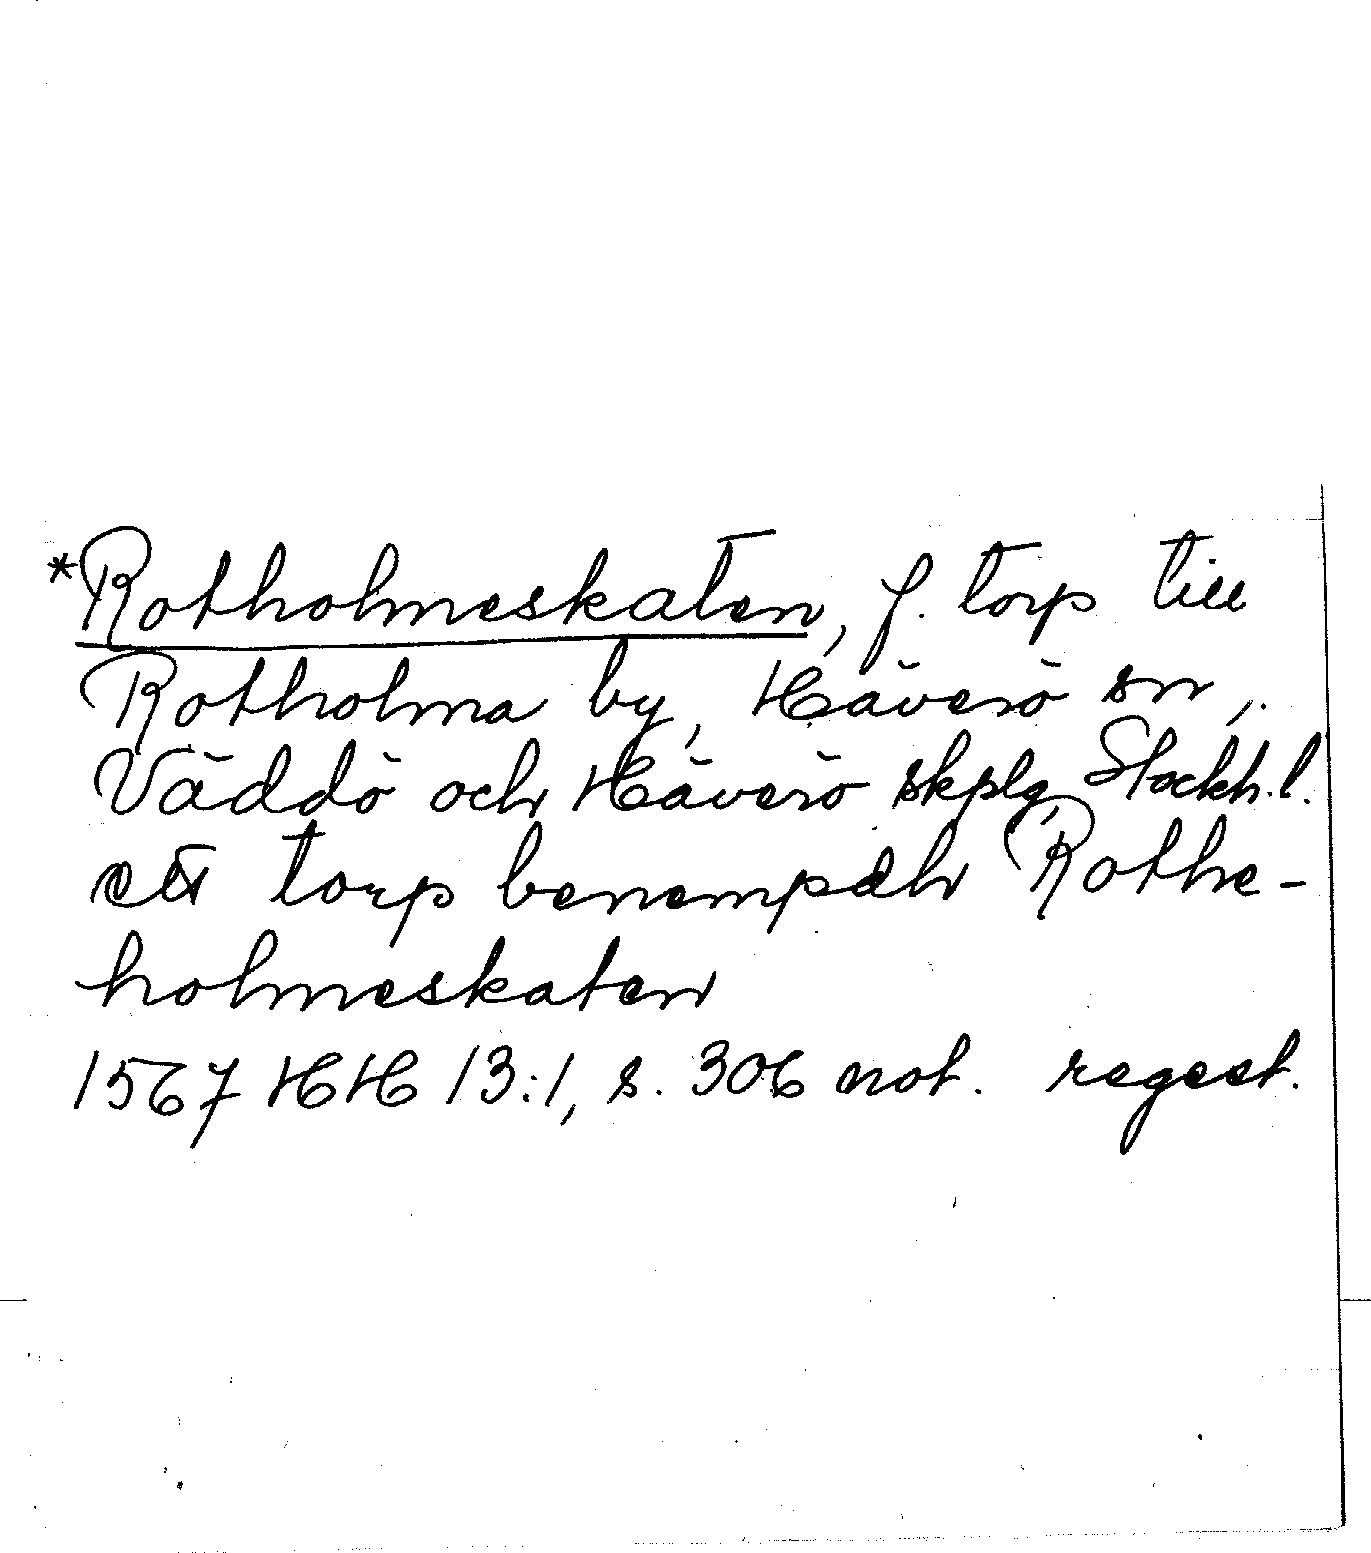 *Rotholmeskaten, f. torp till
Rotholma by, Häverö sn,
Väddö och Häverö skplg, Stockh. l.
ett torp benempdh Rothe-
holmeskaten
1567 HH 13:1, s. 306 not. regest.